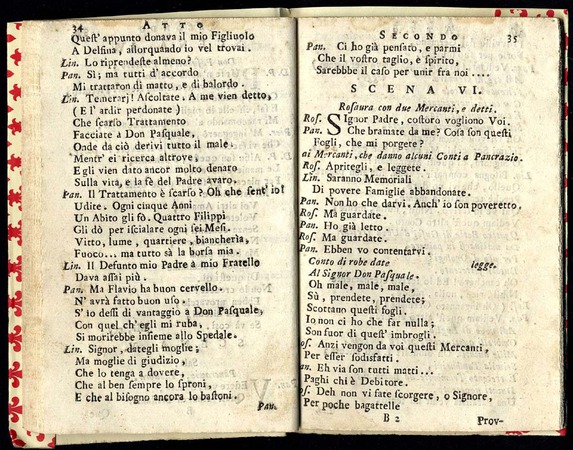 34
ATTO
Quest' appunto donava il mio Figliuolo
A Delfina, allorquando io vel trovai.
Lin. Lo riprendeste almeno?
Pan. Sì; ma tutti d'accordo
Mi trattaron di matto, e di balordo.
Lin. Temerarj! Ascoltate. A me vien detto,
( E l' ardir perdonate )
Che scarso Trattamento
Facciate a Don Pasquale,
Onde da ciò derivi tutto il male.
Mentr' ei ricerca altrove,
E gli vien dato ancor molto denaro
Sulla vita, e la fè del Padre avaro.
Pan. Il Trattamento è scarso? Oh che sent' io!
Udite. Ogni cinque Anni
Un Abito gli fò. Quattro Filippi
Gli dò per iscialare ogni sei Mesi.
Vitto, lume, quartiere, biancherìa,
Fuoco... ma tutto sà la borsa mia.
Lin. Il Defunto mio Padre a mio Fratello
Dava assai più.
Pan. Ma Flavio ha buon cervello.
N' avrà fatto buon uso.
S' io dessi di vantaggio a Don Pasquale,
Con quel ch' egli mi ruba,
Si morirebbe insieme allo Spedale.
Lin. Signor, dategli moglie;
Ma moglie di giudizio,
Che lo tenga a dovere,
Che al ben sempre lo sproni,
E che al bisogno ancora lo bastoni.
Pan.
SECONDO
35
Pan. Ci ho già pensato, e parmi
Che il vostro taglio, e spirito,
Sarebbe il caso per unir fra noi ....
SCENA VI.
Rosaura con due Mercanti, e detti.
Ros. SIgnor Padre, costoro vogliono Voi.
Pan. Che bramate da me? Cosa son questi
Fogli, che mi porgete?
ai Mercanti, che danno alcuni Conti a Pancrazio.
Ros. Apritegli, e leggete.
Lin. Saranno Memoriali
Di povere Famiglie abbandonate.
Pan. Non ho che darvi. Anch' io son poveretto,
Ros. Ma guardate.
Pan. Ho già letto.
Ros. Ma guardate.
Pan. Ebben vo contentarvi.
Conto di robe date legge.
Al Signor Don Pasquale.
Oh male, male, male,
Sù, prendete, prendete;
Scottano questi fogli.
Io non ci ho che far nulla;
Son fuor di quest' imbrogli.
os. Anzi vengon da voi questi Mercanti,
Per esser sodisfatti.
an. Eh via son tutti matti...
Paghi chi è Debitore.
os. Deh non vi fate scorgere, o Signore,
Per poche bagattelle
B 2
Prov-